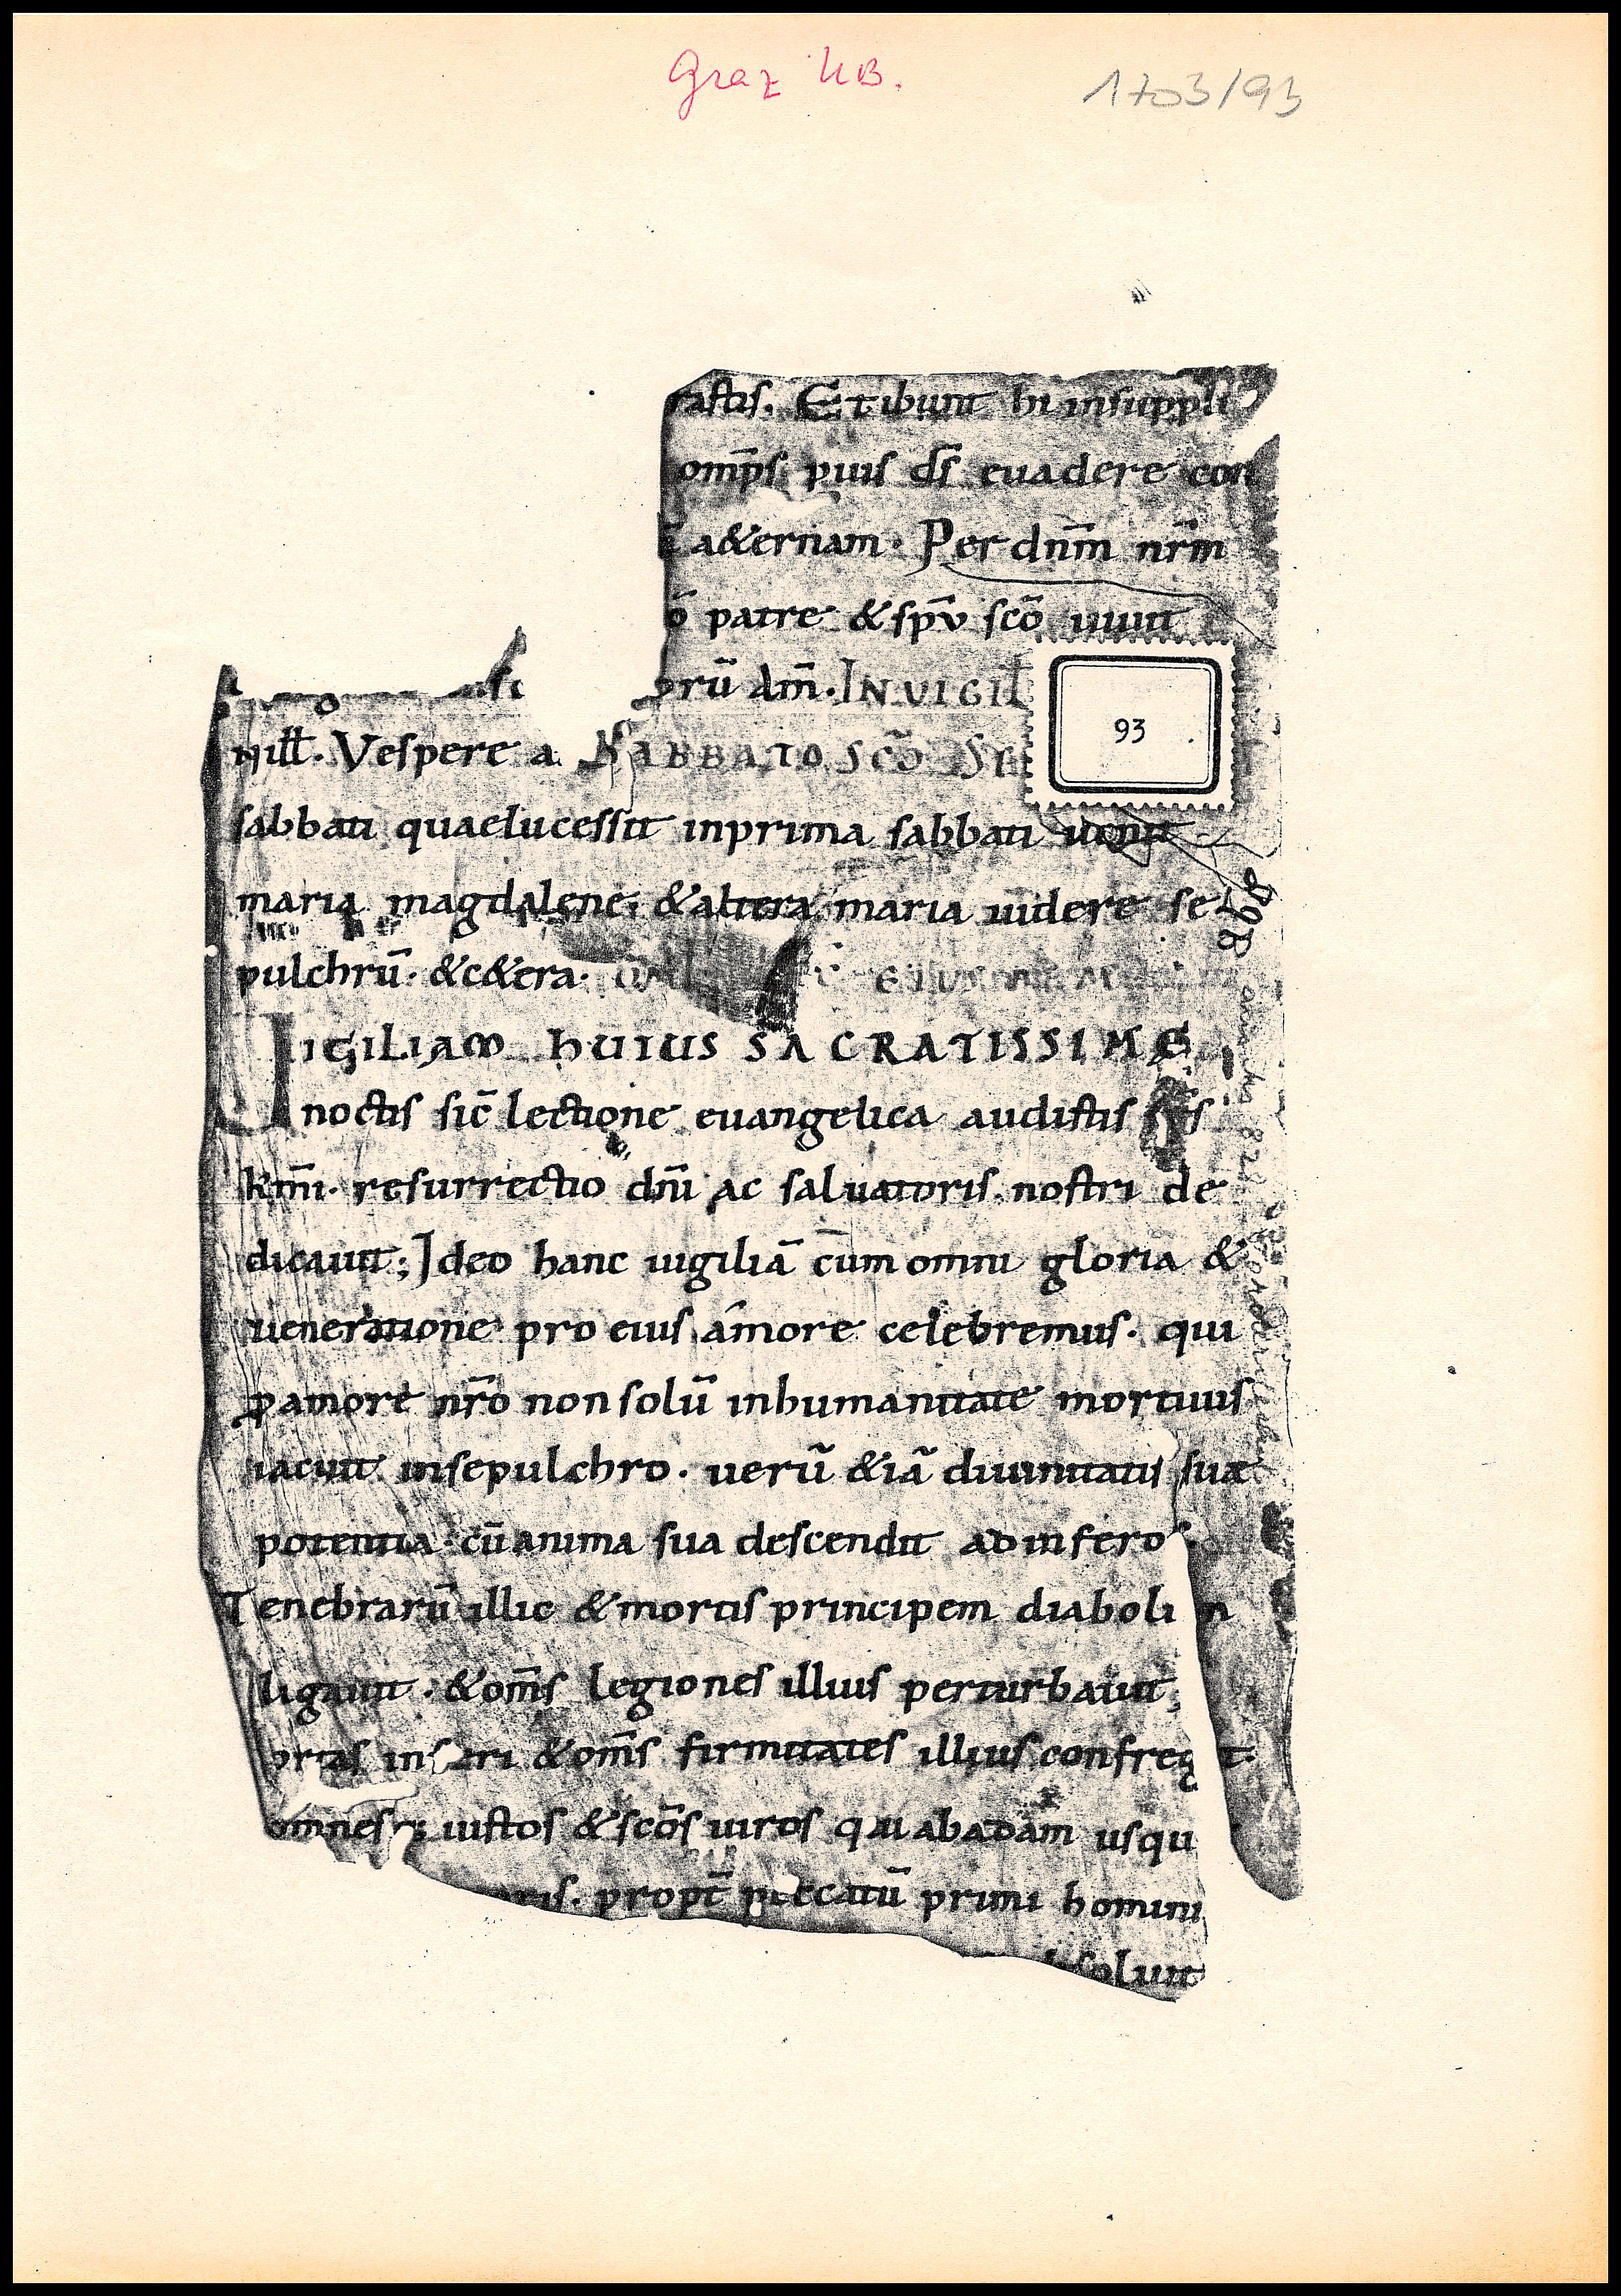 Graz UB.
1703/93
fastis. Et ibunt hi insuppli
omps pius ds euadere con
a&ernam. Per dnm nrm
o patre & spu sco uiuit
prū dm. IN VIGIL
93
nill. Vespere a SABBATO SCO
sabbati quaelucessit inprima sabbati uenit
maria magdalene; & altera maria uidere se
pulchrū. &c&era.
VIGILIAM HUIUS SACRATISSIME
noctis sic̄ lectione euangelica audistis
km̄i. resurrectio dn̄i ac saluatoris nostri de
dicauit; Ideo hanc uigiliā cum omni gloria &
ueneratione pro eius amore celebremus. qui
p amore nr̄o non solū inhumanitate mortuus
iacuit insepulchro. uerū &iā diuinitatis suae
potentia cū anima sua descendit ad inferos.
Tenebrarū illic & mortis principem diabolum
ligauit. & om̄s legiones illius perturbauit
ortas inferi & om̄s firmitates illius confregit.
omnesq; iustos & scōs uiros qui ab adam usqu
oris. propt̄ peccatū primi homini
soluit